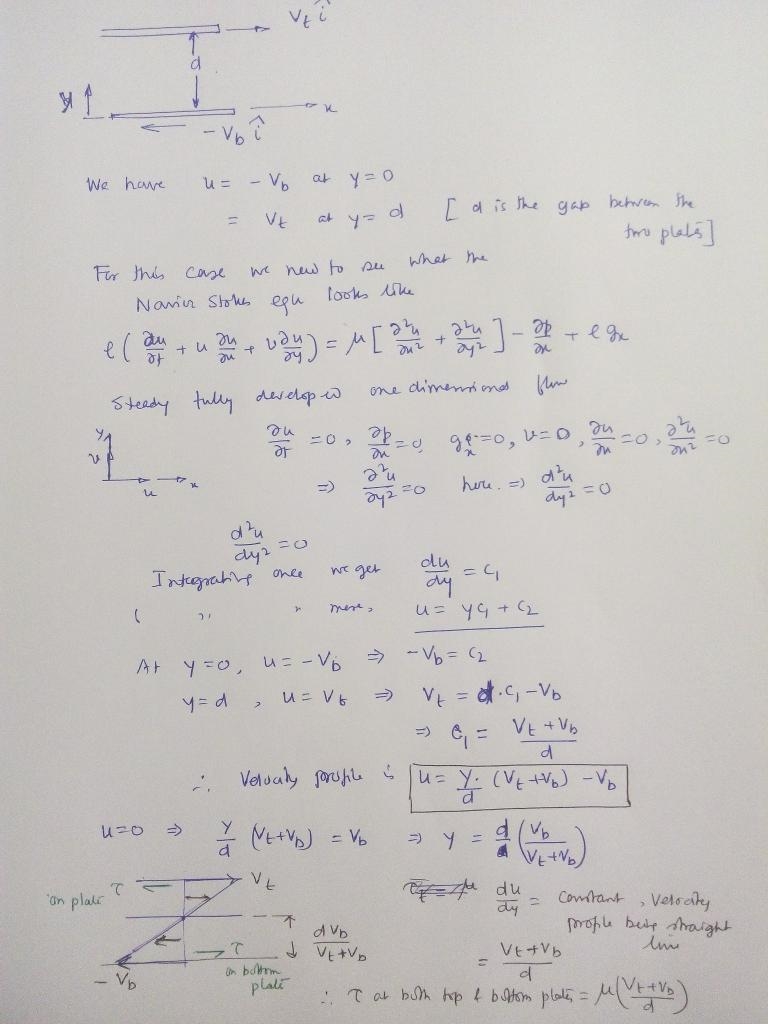 V_t î
d
y
x
- V_b î
We have u = - V_b at y = 0
= V_t at y = d [ d is the gap between the two plates]
For this case we need to see what the
Navier Stokes eqn looks like
ρ ( ∂u/∂t + u ∂u/∂x + v ∂u/∂y ) = μ [ ∂²u/∂x² + ∂²u/∂y² ] - ∂p/∂x + ρ g_x
Steady fully developed one dimensional flow
y v u x
∂u/∂t = 0, ∂p/∂x = 0, g_x = 0, v = 0, ∂u/∂x = 0, ∂²u/∂x² = 0
⇒ ∂²u/∂y² = 0 here. ⇒ d²u/dy² = 0
d²u/dy² = 0
Integrating once we get du/dy = C₁
( ,, " more, u = yC₁ + C₂
At y = 0, u = - V_b ⇒ - V_b = C₂
y = d , u = V_t ⇒ V_t = d · C₁ - V_b
⇒ C₁ = (V_t + V_b)/d
∴ Velocity profile is u = y/d · (V_t + V_b) - V_b
u = 0 ⇒ y/d (V_t + V_b) = V_b ⇒ y = d (V_b/(V_t + V_b))
on plate τ
V_t
d V_b/(V_t + V_b)
τ
on bottom
plate
- V_b
du/dy = constant , velocity
profile being straight
line
= (V_t + V_b)/d
∴ τ at both top & bottom plates = μ((V_t + V_b)/d)